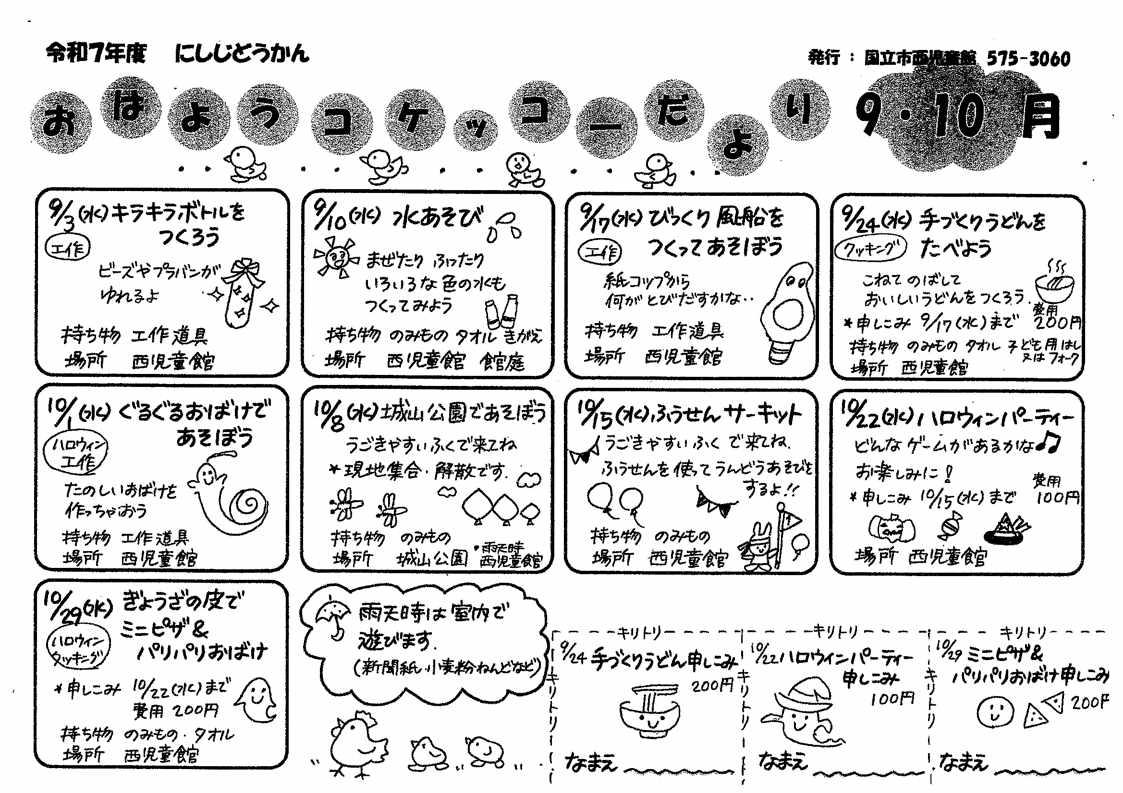 令和7年度　にしじどうかん
発行：国立市西児童館 575-3060
おはようコケッコーだより 9・10月
9/3(水) キラキラボトルを
つくろう
工作
ビーズやプラバンが
ゆれるよ
持ち物 工作道具
場所 西児童館
9/10(水) 水あそび
まぜたり ふったり
いろいろな色の水も
つくってみよう
持ち物 のみもの タオル きがえ
場所 西児童館 館庭
9/17(水) びっくり風船を
つくってあそぼう
工作
紙コップから
何がとびだすかな‥
持ち物 工作道具
場所 西児童館
9/24(水) 手づくりうどんを
たべよう
クッキング
こねて のばして
おいしいうどんをつくろう.
費用
200円
*申しこみ 9/17(水)まで
持ち物 のみもの タオル 子ども用はし
又は フォーク
場所 西児童館
10/1(水) ぐるぐるおばけで
あそぼう
ハロウィン
工作
たのしいおばけを
作っちゃおう
持ち物 工作道具
場所 西児童館
10/8(水) 城山公園であそぼう
うごきやすいふくで来てね
*現地集合・解散です.
持ち物 のみもの
場所 城山公園
*雨天時
西児童館
10/15(水) ふうせんサーキット
うごきやすいふくで来てね.
ふうせんを使ってうんどうあそびを
するよ!!
持ち物 のみもの
場所 西児童館
10/22(水) ハロウィンパーティー
どんなゲームがあるかな♫
お楽しみに!
費用
100円
*申しこみ 10/15(水)まで
場所 西児童館
10/29(水) ぎょうざの皮で
ミニピザ&
パリパリおばけ
ハロウィン
クッキング
*申しこみ 10/22(水)まで
費用 200円
持ち物 のみもの・タオル
場所 西児童館
雨天時は室内で
遊びます.
(新聞紙・小麦粉ねんどなど)
キリトリ
キリトリ
9/24 手づくりうどん申しこみ
200円
なまえ
キリトリ
キリトリ
10/22 ハロウィンパーティー
申しこみ
100円
なまえ
キリトリ
キリトリ
10/29 ミニピザ&
パリパリおばけ申しこみ
200円
なまえ